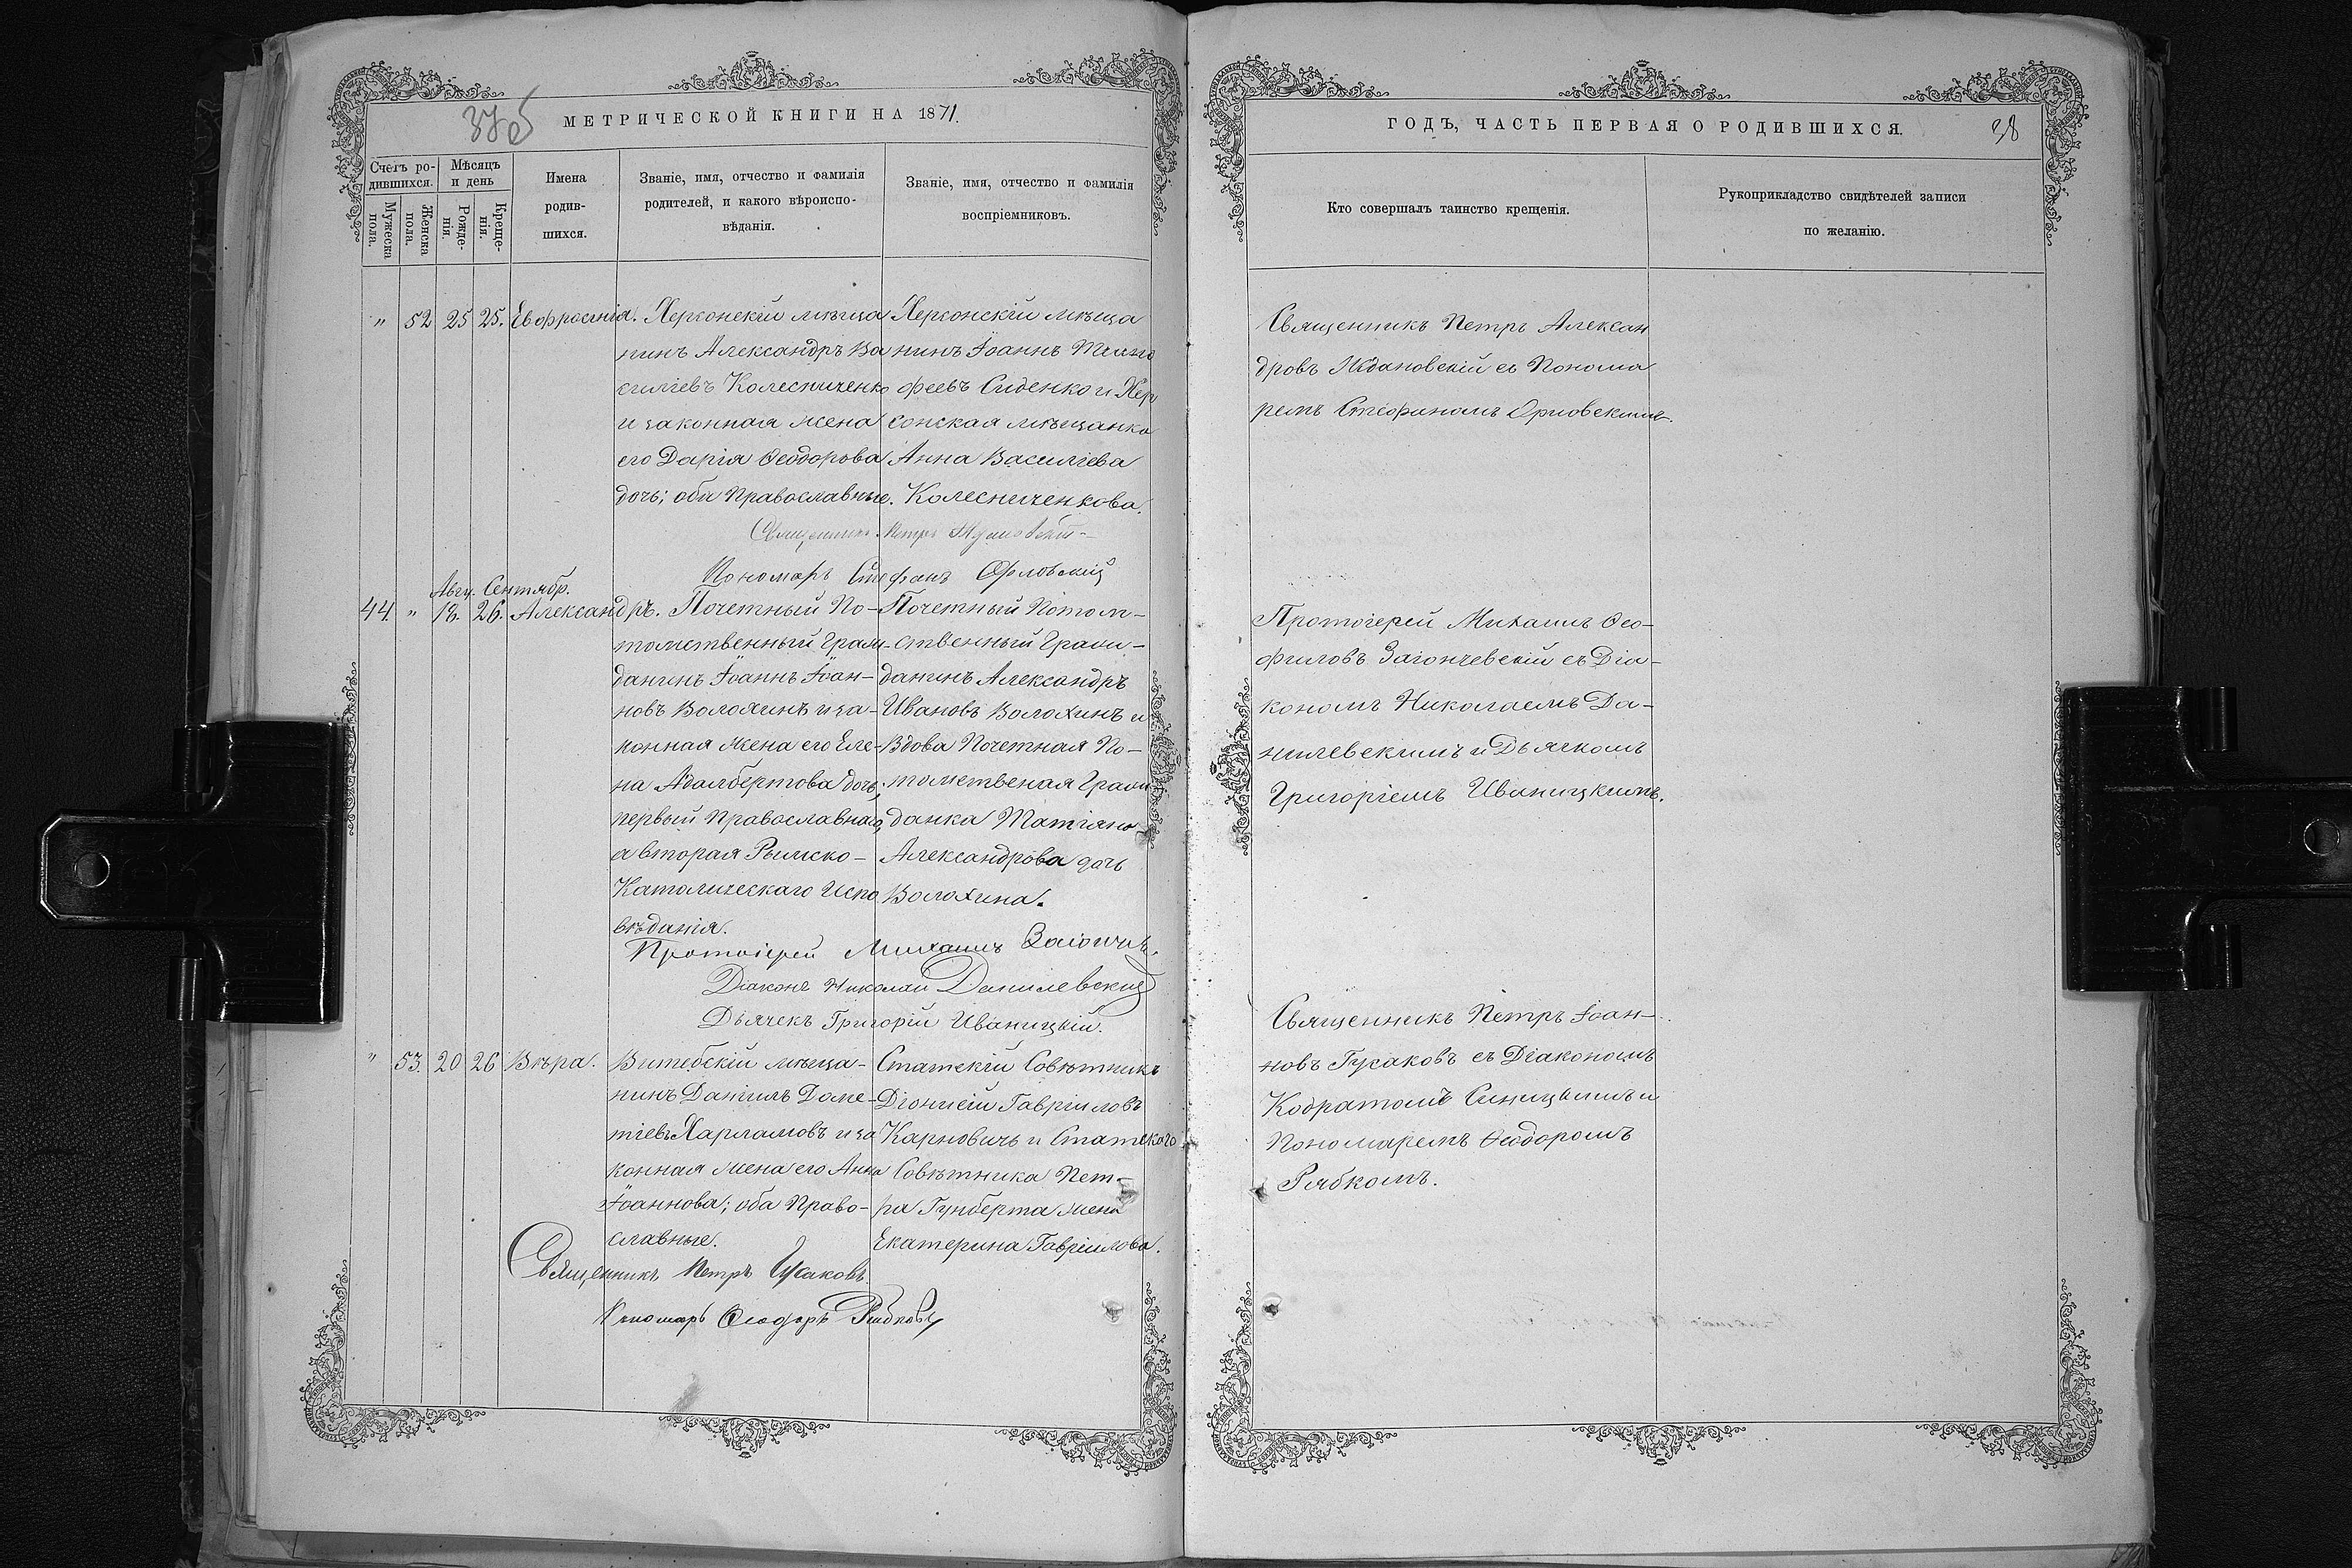 37об
МЕТРИЧЕСКОЙ КНИГИ НА 1871.
Счетъ ро-
дившихся.
Мѣсяцъ
и день
Мужеска
пола.
Женска
пола.
Рожде-
нія.
Креще-
нія.
Имена
родив-
шихся.
Званіе, имя, отчество и фамилія
родителей, и какого вѣроиспо-
вѣданія.
Званіе, имя, отчество и фамилія
воспріемниковъ.
" 52 25 25. Евфросинія.
Херсонскій мѣща
нинъ Александръ Ва
силіевъ Колесниченко
и законная жена
его Дарія Ѳеодорова
дочь; оба Православные.
Херсонскій мѣща
нинъ Іоаннъ Тимо
феевъ Сиденко и Хер
сонская мѣщанка
Анна Василіева
Колесниченкова.
Священникъ Петръ Ждановскій
Пономарь Стефанъ Орловскій
Авгу. Сентябр.
44. " 18. 26. Александръ.
Почетный По-
томственный Граж-
данинъ Іоаннъ Іоан-
новъ Волохинъ и за-
конная жена его Еле-
на Адалбертова дочь,
первый Православнаго,
а вторая Римско-
Католическаго Испо
вѣданія.
Почетный Потом-
ственный Гражи-
данинъ Александръ
Ивановъ Волохинъ и
Вдова Почетная По-
томственая Гражи
данка Татіана
Александрова дочь
Волохина.
Протоіерей Михаилъ
Діаконъ Николай Данилевскій
Дьячекъ Григорій Иваницкій.
" 53. 20 26 Вѣра.
Витебскій мѣща-
нинъ Даніилъ Доме-
тіевъ Харламовъ и за
конная жена его Анна
Іоаннова; оба Право-
славные.
Статскій Совѣтникъ
Діонисій Гавріиловъ
Карновичъ и Статского
Совѣтника Пет-
ра Гунберта жена
Екатерина Гавріилова.
Священникъ Петръ Гусаковъ
Пономарь Ѳеодоръ
ГОДЪ, ЧАСТЬ ПЕРВАЯ О РОДИВШИХСЯ.
38
Кто совершалъ таинство крещенія.
Рукоприкладство свидѣтелей записи
по желанію.
Священникъ Петръ Алексан
дровъ Ждановскій съ Понома
ремъ Стефаномъ Орловскимъ.
Протоіерей Михаилъ Ѳео-
филовъ Заіончевскій съ Діа-
кономъ Николаемъ Да-
нилевскимъ и Дьячкомъ
Григоріемъ Иваницкимъ.
Священникъ Петръ Іоан-
новъ Гусаковъ съ Діакономъ
Кодратомъ Синицкимъ и
Пономаремъ Ѳеодоромъ
Рябкомъ.